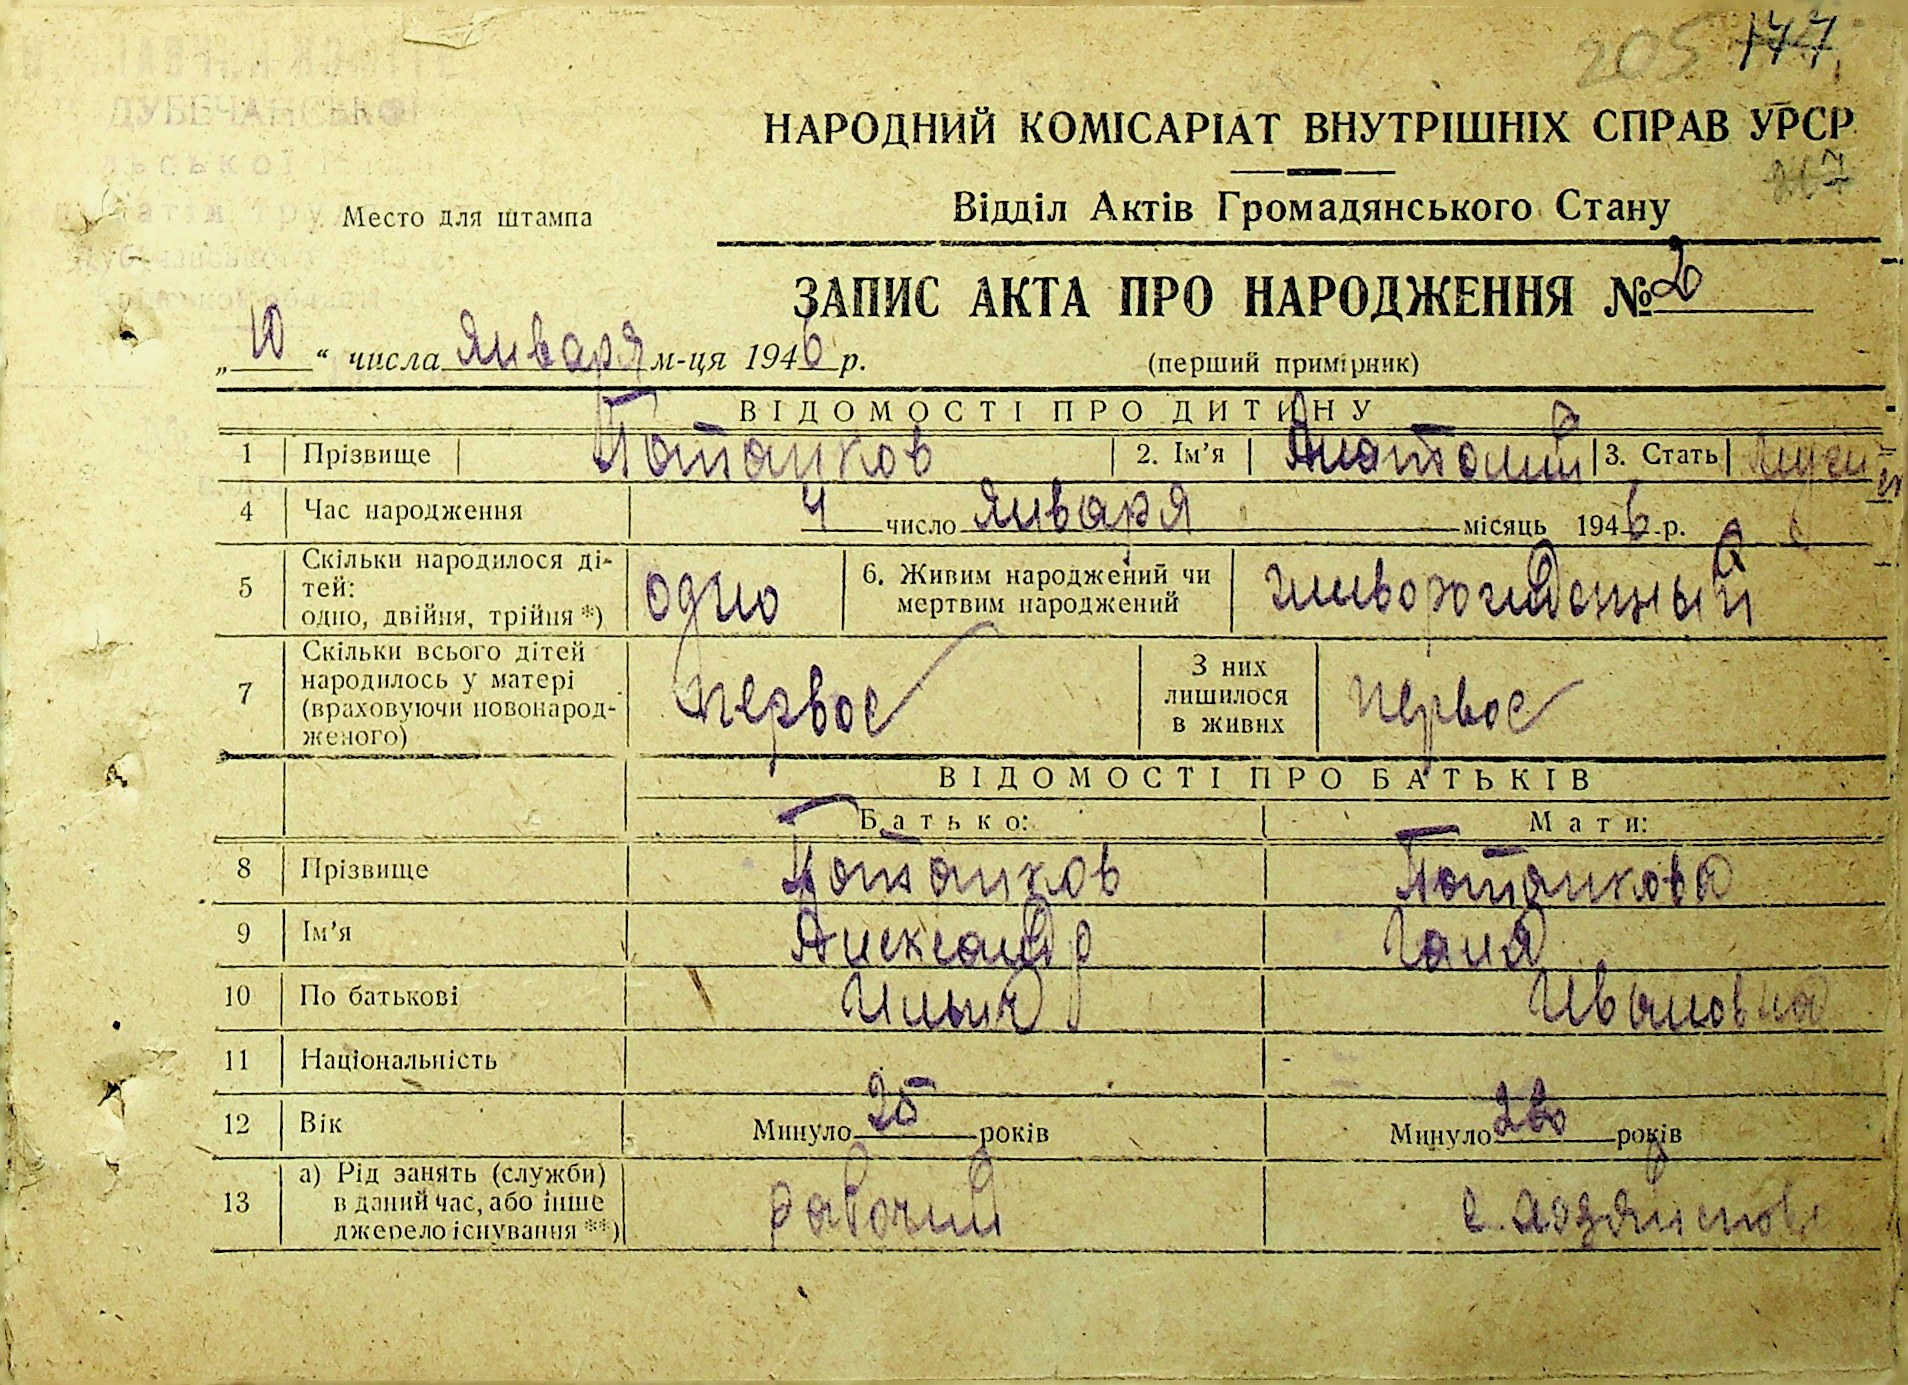 205 177
НАРОДНИЙ КОМІСАРІАТ ВНУТРІШНІХ СПРАВ УРСР
Відділ Актів Громадянського Стану
Место для штампа
ЗАПИС АКТА ПРО НАРОДЖЕННЯ № 2
„10“ числа января м-ця 1946 р.
(перший примірник)
ВІДОМОСТІ ПРО ДИТИНУ
1 Прізвище Потапков 2. Ім'я Анатолий 3. Стать муж
4 Час народження 4 число января місяць 1946 р.
5 Скільки народилося ді-
тей:
одно, двійня, трійня *) одно 6. Живим народжений чи
мертвим народжений живорожденный
7 Скільки всього дітей
народилось у матері
(враховуючи новонарод-
женого) первое З них
лишилося
в живих первое
ВІДОМОСТІ ПРО БАТЬКІВ
Батько: Мати:
8 Прізвище Потапков Потапкова
9 Ім'я Александр Галя
10 По батькові Ильич Ивановна
11 Національність
12 Вік Минуло 25 років Минуло років
13 а) Рід занять (служби)
в даний час, або інше
джерело існування **) рабочий с. хозяйстве